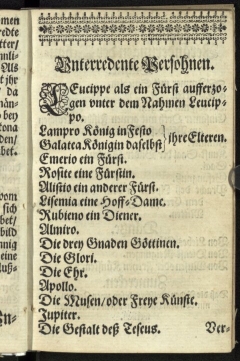 Unterredente Persohnen.
LEucippe als ein Fürst aufferzo-
gen unter dem Nahmen Leucip-
po.
Lampro König in Festo
Galatea Königin daselbst } ihre Elteren.
Emerio ein Fürst.
Rosite eine Fürstin.
Alistio ein anderer Fürst.
Lisemia eine Hoff-Dame.
Rubieno ein Diener.
Almiro.
Die drey Gnaden Göttinen.
Die Glori.
Die Ehr.
Apollo.
Die Musen/ oder Freye Künste.
Jupiter.
Die Gestalt deß Teseus.
Ver-